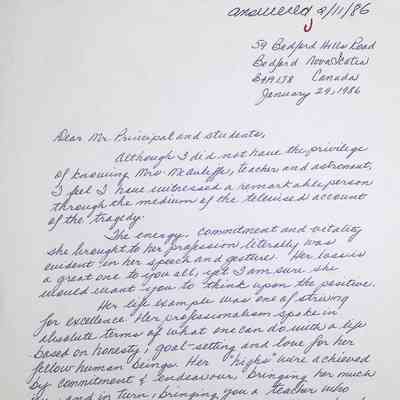 answered 2/11/86
59 Bedford Hills Road
Bedford Nova Scotia
Canada
January 29, 1986
Dear Mr Principal and students,
Although I did not have the privilege
of knowing Mrs McAuliffe, teacher and astronaut,
I feel I have witnessed a remarkable person
through the medium of the televised account
of the tragedy.
The energy, commitment and vitality
she brought to her profession literally was
evident in her speech and gesture. Her loss is
a great one to you all, yet I am sure she
would want you to think upon the positive.
Her life example was one of striving
for excellence. Her professionalism spoke in
absolute terms of what one can do with a life
based on honesty, goal-setting and love for her
fellow human beings. Her "highs" were achieved
by commitment & endeavour, bringing her much
and in turn, bringing you a teacher who